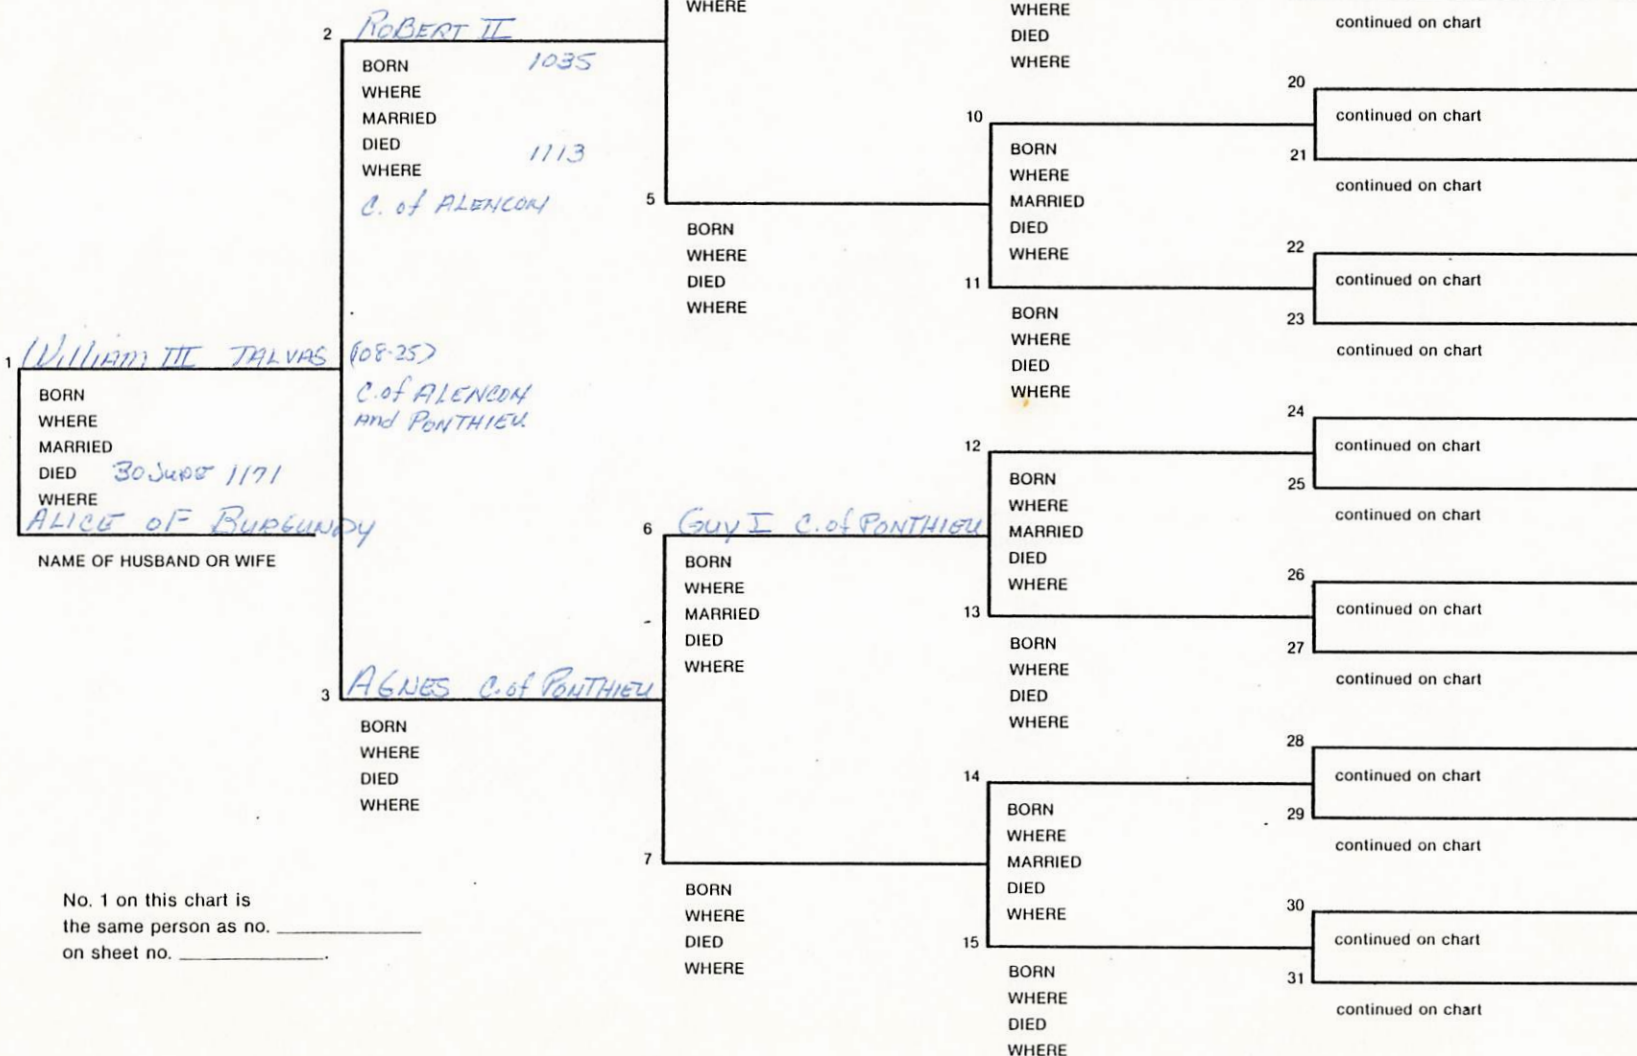 WHERE
2 ROBERT II
BORN 1035
WHERE
MARRIED
DIED 1113
WHERE
C. of ALENCON
1 William III TALVAS (08-25)
C. of ALENCON
and PONTHIEU
BORN
WHERE
MARRIED
DIED 30 June 1171
WHERE
ALICE OF BURGUNDY
NAME OF HUSBAND OR WIFE
3 AGNES C. of PONTHIEU
BORN
WHERE
DIED
WHERE
No. 1 on this chart is
the same person as no.
on sheet no. .
5
BORN
WHERE
DIED
WHERE
6 Guy I C. of PONTHIEU
BORN
WHERE
MARRIED
DIED
WHERE
7
BORN
WHERE
DIED
WHERE
WHERE
DIED
WHERE
10
BORN
WHERE
MARRIED
DIED
WHERE
11
BORN
WHERE
DIED
WHERE
12
BORN
WHERE
MARRIED
DIED
WHERE
13
BORN
WHERE
DIED
WHERE
14
BORN
WHERE
MARRIED
DIED
WHERE
15
BORN
WHERE
DIED
WHERE
continued on chart
20
continued on chart
21
continued on chart
22
continued on chart
23
continued on chart
24
continued on chart
25
continued on chart
26
continued on chart
27
continued on chart
28
continued on chart
29
continued on chart
30
continued on chart
31
continued on chart